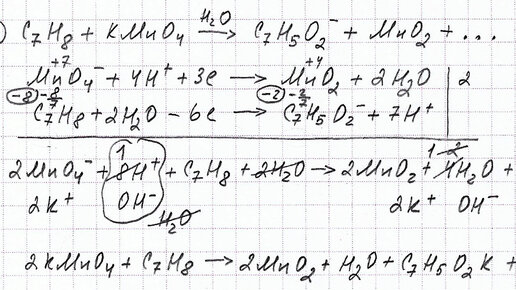 ) C₇H₈ + KMnO₄ —H₂O→ C₇H₅O₂⁻ + MnO₂ + ...
+7 +4
MnO₄⁻ + 4H⁺ + 3e → MnO₂ + 2H₂O | 2
-8 -8/7 -2 -2/7
C₇H₈ + 2H₂O - 6e → C₇H₅O₂⁻ + 7H⁺
1 1 2
2MnO₄⁻ + 8H⁺ + C₇H₈ + 2H₂O → 2MnO₂ + 4H₂O +
2K⁺ OH⁻ 2K⁺ OH⁻
H₂O
2KMnO₄ + C₇H₈ → 2MnO₂ + H₂O + C₇H₅O₂K +